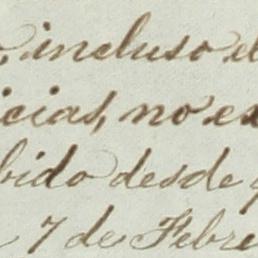 , incluso el
icias, no ex
bido desde q
7 de Febre